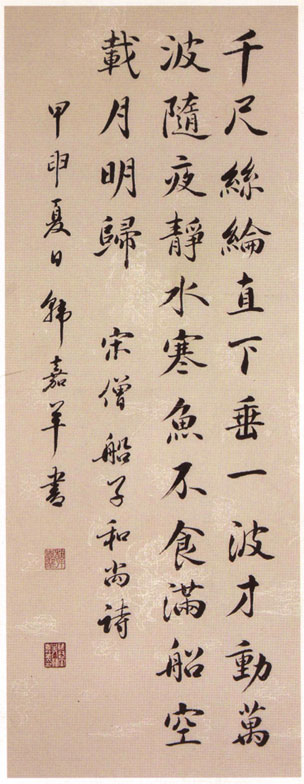 千尺絲綸直下垂一波才動萬
波隨夜靜水寒魚不食滿船空
載月明歸 宋僧船子和尚詩
甲申夏日韩嘉羊書